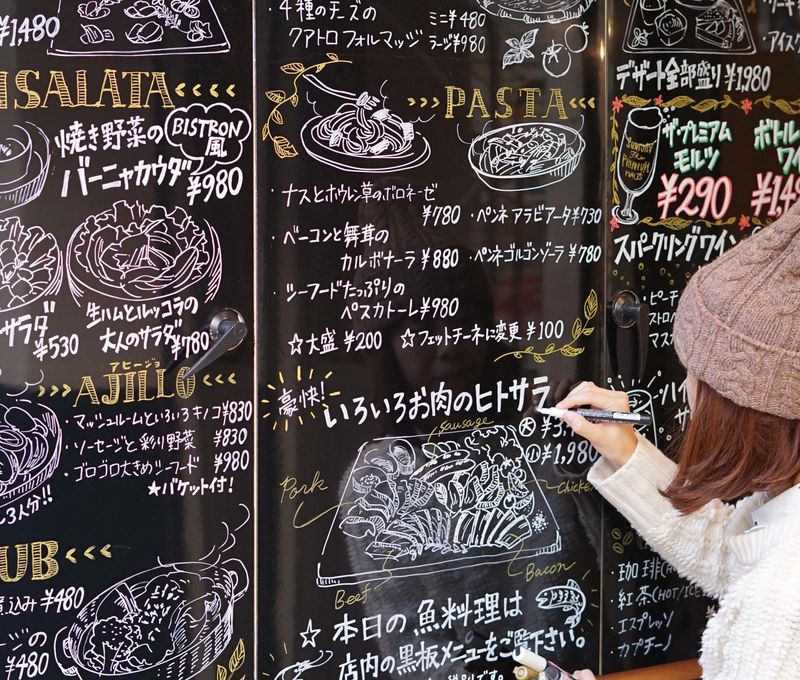 ¥1,480
SALATA
焼き野菜の
BISTRON
風
バーニャカウダ
¥980
サラダ
¥530
生ハムとルッコラの
大人のサラダ
¥780
アヒージョ
AJILLO
マッシュルームといろいろキノコ ¥830
・ソーセージと彩り野菜 ¥830
・ゴロゴロ大きめシーフード ¥980
★バケット付!
3人分!!
¥480
¥480
4種のチーズの
クアトロフォルマッジ
ミニ ¥480
ラージ ¥980
PASTA
・ナスとホウレン草のボロネーゼ
¥780
・ベーコンと舞茸の
カルボナーラ ¥880
・シーフードたっぷりの
ペスカトーレ ¥980
・ペンネアラビアータ ¥730
・ペンネゴルゴンゾーラ ¥780
☆大盛 ¥200 ☆フェットチーネに変更 ¥100
豪快!
いろいろお肉のヒトサラ
大
小 ¥1,980
sausage
Pork
Chicken
Beef
Bacon
☆本日の魚料理は
店内の黒板メニューをご覧下さい。
デザート全部盛り ¥1,980
ザ・プレミアム
モルツ
¥290
SUNTORY
The
PREMIUM
MALT'S
ボトル
ワイン
スパークリングワイン
・ピーチ
・珈琲(HOT/
・紅茶(HOT/ICE
・エスプレッソ
・カプチーノ